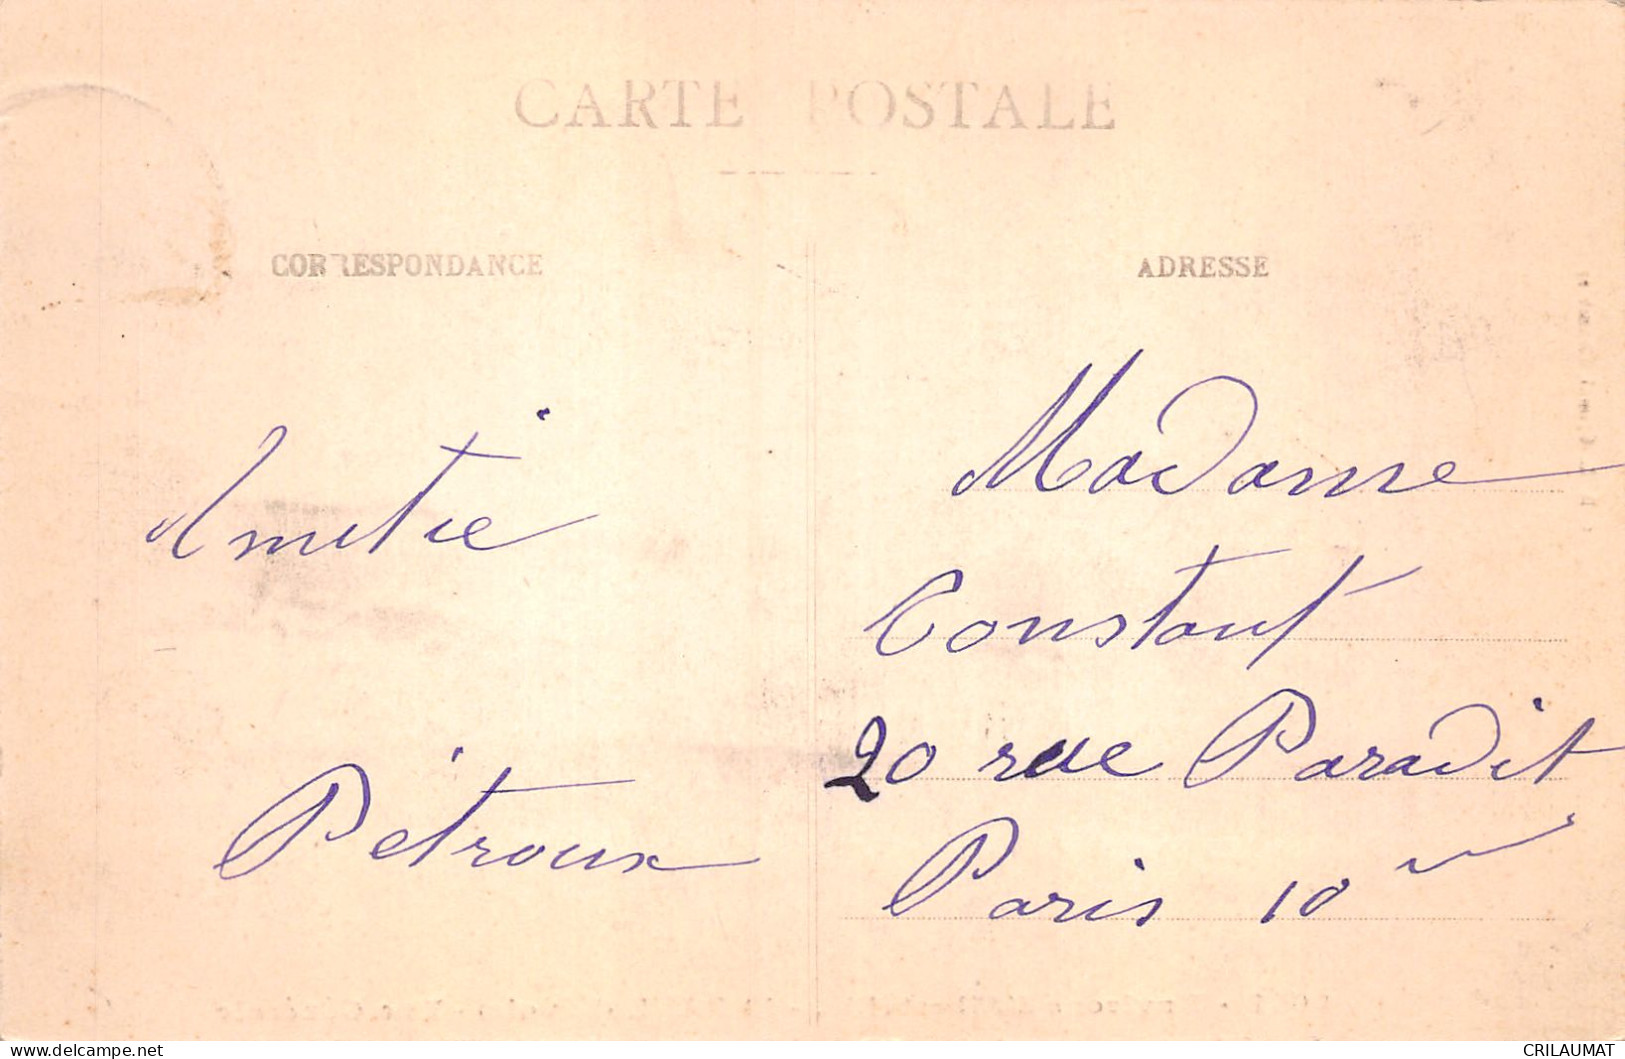 CARTE POSTALE
CORRESPONDANCE
ADRESSE
Amitié
Pétroux
Madame
Constant
20 rue Paradit
Paris 10
delcampe.net
CRILAUMAT